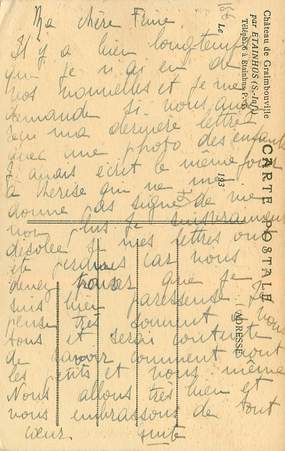 Ma chère
Il y a bien longtemps
que je n'ai eu de
vos nouvelles et je me
demande si vous avez
reçu ma dernière lettre
avec une photo des enfants
J'avais écrit le même jour
à Thérèse qui ne me
donne pas signe de vie
non plus Je serais vraiment
désolée si mes lettres ont
été perdues car vous
devez penser que je
suis bien paresseuse Je
pense très souvent à vous
tous et serai contente
de savoir comment vont
les petits et vous même
Nous allons très bien et
vous embrassons de tout
cœur.
Château de Graimbouville
par ETAINHUS (S.-Inf.)
Téléphone à Etainhus P
Le
193
CARTE POSTALE
ADRESSE